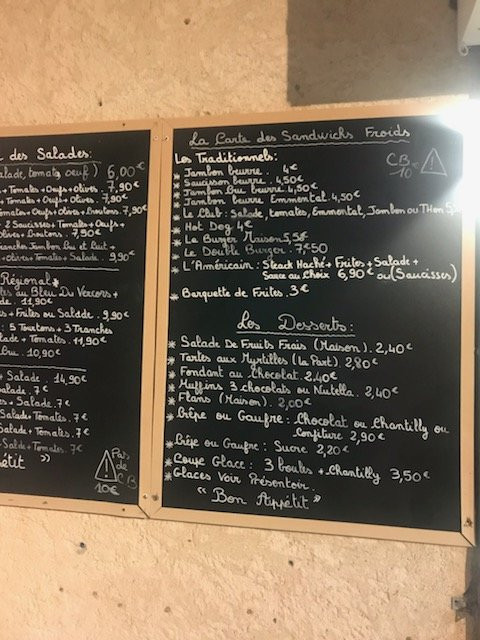 de des Salades:
salade, tomato oeuf). 6,00€
+ Tomates + Oeufs + Olives. 7,90€
+ Tomates + Oeufs + Olives. 7,90€
Tomates + Oeufs + Olives + Croutons. 7,90€
2 Saucisses + Tomates + Oeufs +
Olives + Croutons. 7,90€
Tranches Jambon Cru et Cuit +
+ Olives + Tomates + Salade. 9,90€
Régional
au Bleu Du Vercors +
de. 11,90€
s + Frites ou Salade. 9,90€
: 5 Tourtons + 3 Tranches
lade + Tomates. 11,90€
Cru. 10,90€
+ Salade. 14,90€
Salade. 7€
es + Salade. 7€
Salade + Tomates. 7€
Salade + Tomates. 7€
+ Salade + Tomates. 7€
étit »
Pas
de
CB
10€
La Carte des Sandwichs Froids
Les Traditionnels:
CB
10€
* Jambon beurre. 4€
* Saucisson beurre. 4,50€
* Jambon Cru beurre. 4,50€
* Jambon beurre Emmental. 4,50€
* Le Club: Salade, tomates, Emmental, Jambon ou THon 5
* Hot Dog 4€
* Le Burger Maison 5,50€
* Le Double Burger. 7€50
* L'Américain: Steack Haché + Frites + Salade +
Sauce au Choix 6,90€ ou (Saucisses)
* Barquette de Frites. 3€
Les Desserts:
* Salade De Fruits Frais (Maison). 2,40€
* Tartes aux Myrtilles (La Part). 2,80€
* Fondant au Chocolat. 2.40€
* Muffins 3 chocolats ou Nutella. 2,40€
* Flans (Maison). 2,00€
* Crêpe ou Gaufre: Chocolat ou Chantilly ou
Confiture 2,90€
* Crêpe ou Gaufre: Sucre 2,20€
* Coupe Glace: 3 boules + Chantilly 3,50€
* Glaces Voir Présentoir.
« Bon Appétit »